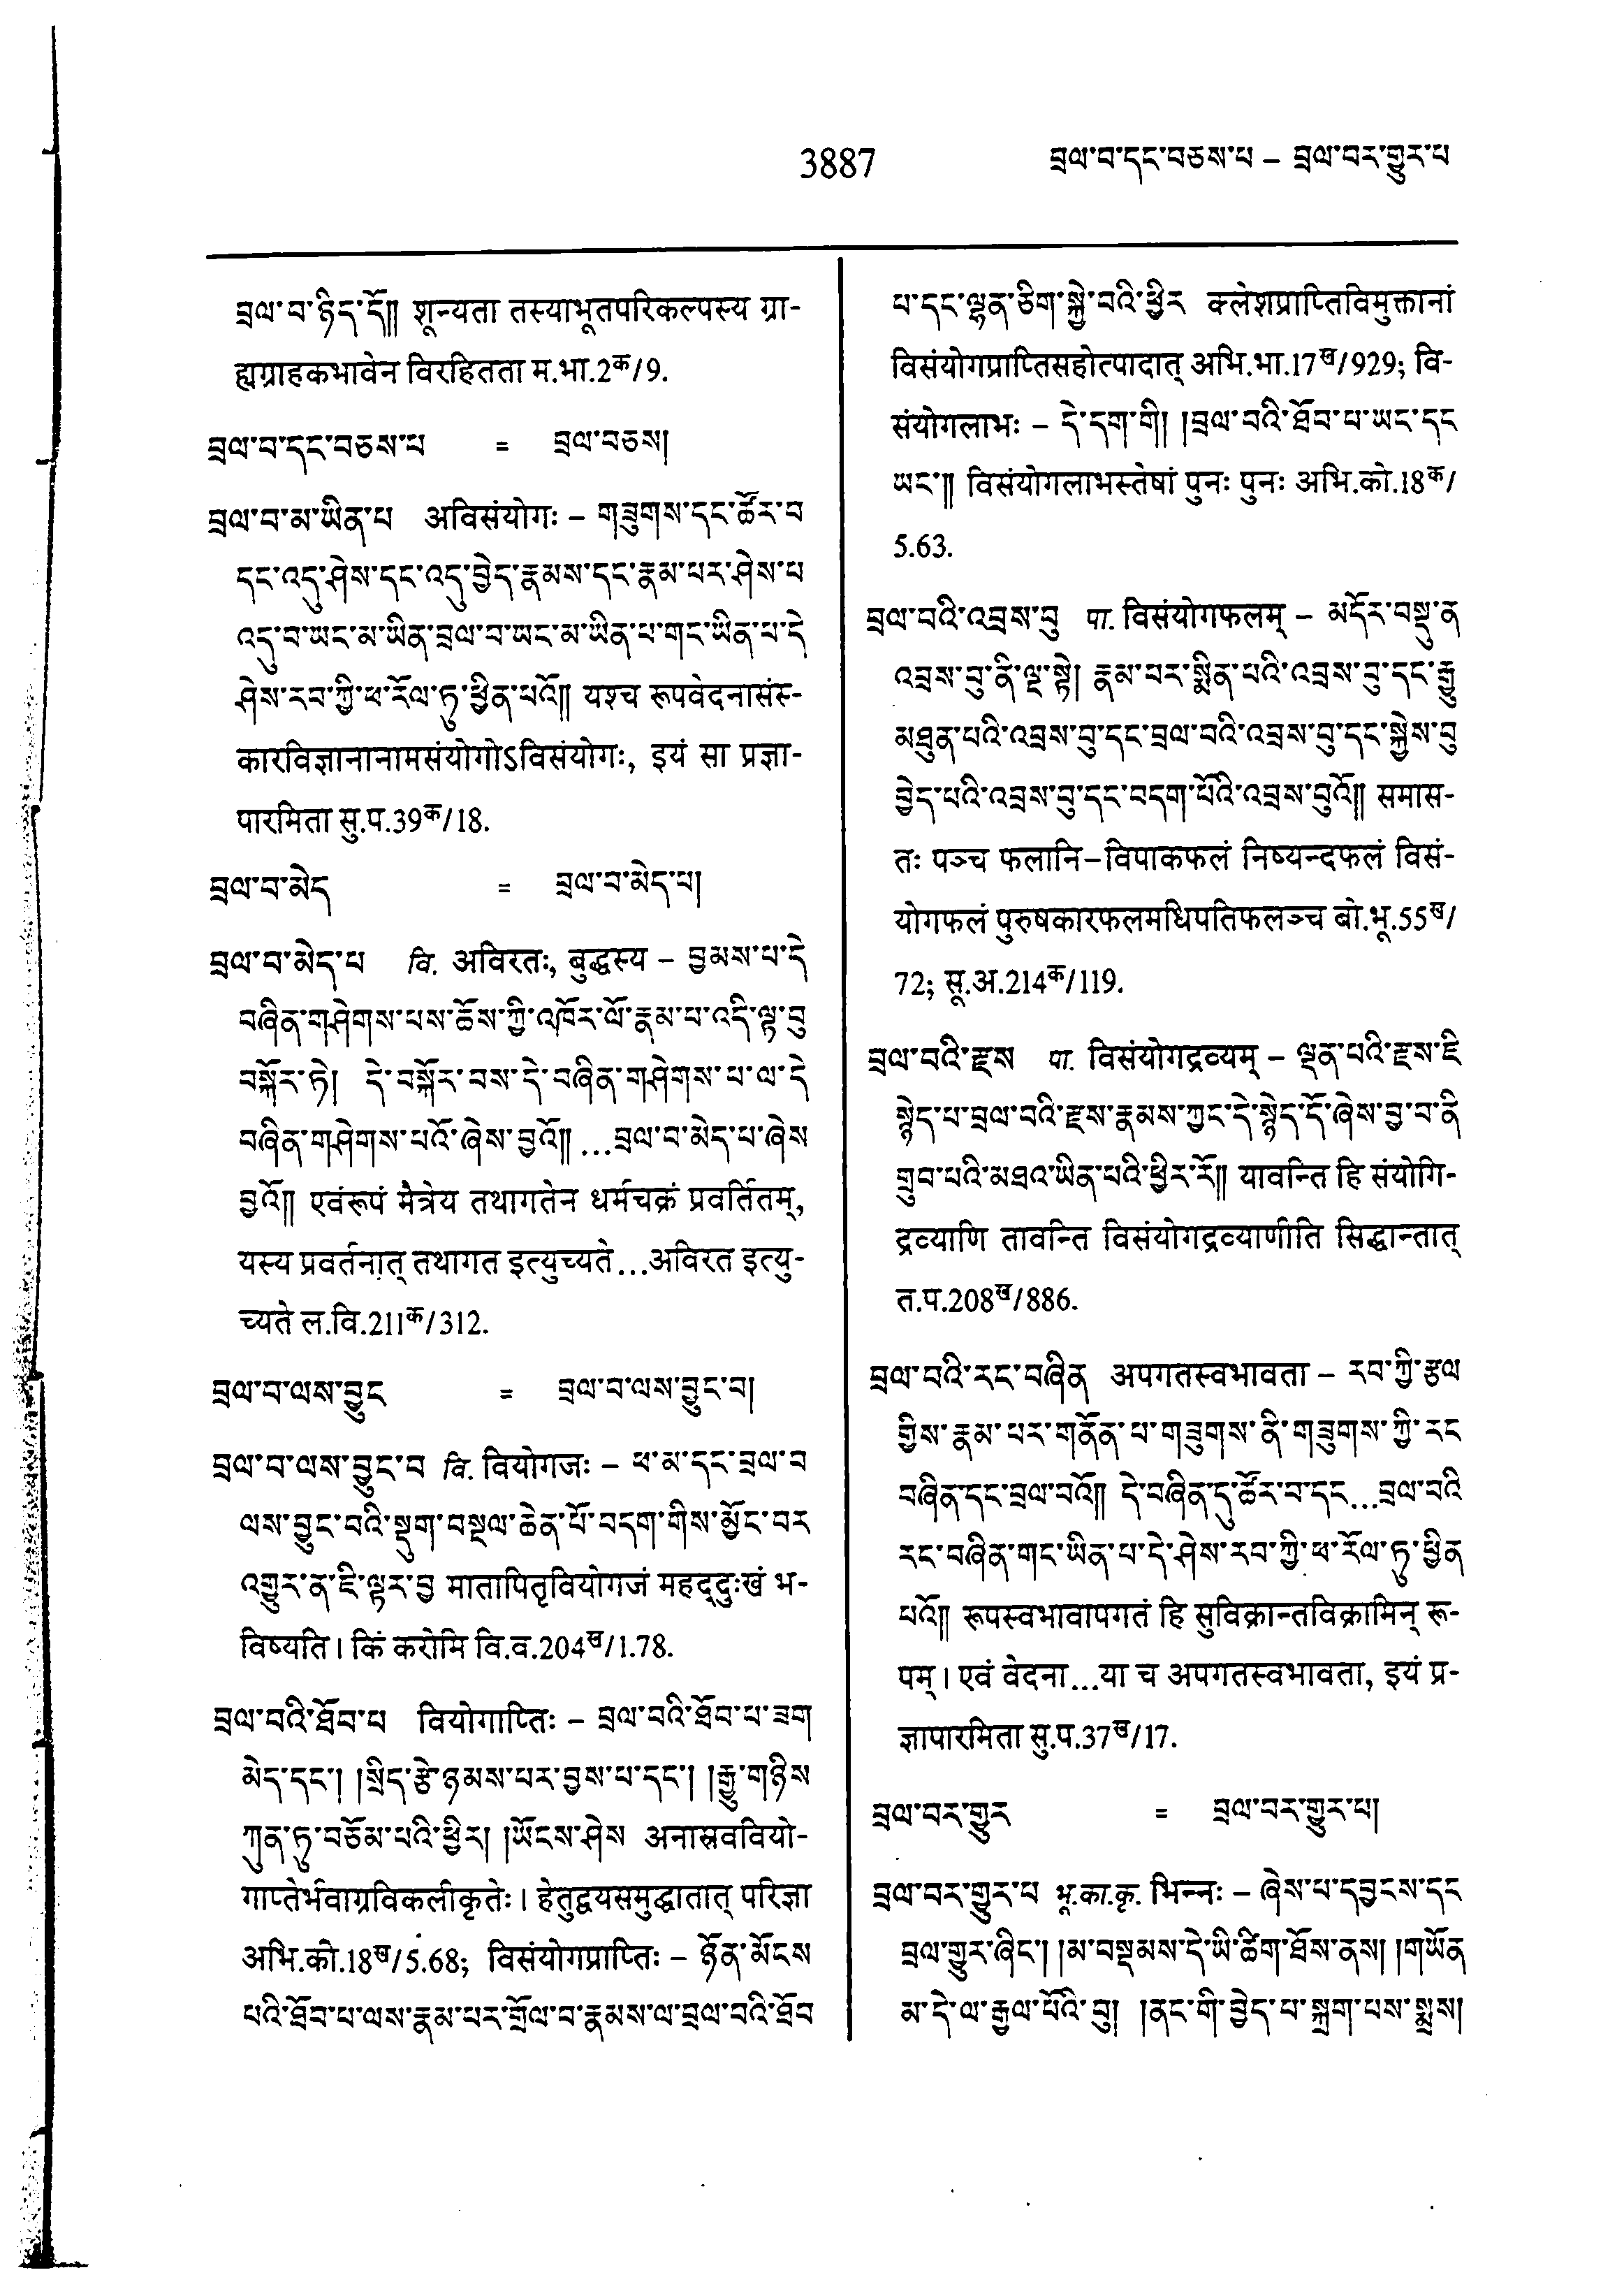 3887
བྲལ་བ་དང་བཅས་པ – བྲལ་བར་གྱུར་པ
བྲལ་བ་ཉིད་དོ།། शून्यता तस्याभूतपरिकल्पस्य ग्रा-
ह्यग्राहकभावेन विरहितता म.भा.2क/9.
བྲལ་བ་དང་བཅས་པ = བྲལ་བཅས།
བྲལ་བ་མ་ཡིན་པ अविसंयोगः – གཟུགས་དང་ཚོར་བ
དང་འདུ་ཤེས་དང་འདུ་བྱེད་རྣམས་དང་རྣམ་པར་ཤེས་པ
འདུ་བ་ཡང་མ་ཡིན་བྲལ་བ་ཡང་མ་ཡིན་པ་གང་ཡིན་པ་དེ
ཤེས་རབ་ཀྱི་ཕ་རོལ་ཏུ་ཕྱིན་པའོ།། यश्च रूपवेदनासंस्-
कारविज्ञानानामसंयोगोऽविसंयोगः, इयं सा प्रज्ञा-
पारमिता सु.प.39क/18.
བྲལ་བ་མེད = བྲལ་བ་མེད་པ།
བྲལ་བ་མེད་པ वि. अविरतः, बुद्धस्य – བྱམས་པ་དེ
བཞིན་གཤེགས་པས་ཆོས་ཀྱི་འཁོར་ལོ་རྣམ་པ་འདི་ལྟ་བུ
བསྐོར་ཏེ། དེ་བསྐོར་བས་དེ་བཞིན་གཤེགས་པ་ལ་དེ
བཞིན་གཤེགས་པའོ་ཞེས་བྱའོ།། ...བྲལ་བ་མེད་པ་ཞེས
བྱའོ།། एवंरूपं मैत्रेय तथागतेन धर्मचक्रं प्रवर्तितम्,
यस्य प्रवर्तनात् तथागत इत्युच्यते...अविरत इत्यु-
च्यते ल.वि.211क/312.
བྲལ་བ་ལས་བྱུང = བྲལ་བ་ལས་བྱུང་བ།
བྲལ་བ་ལས་བྱུང་བ वि. वियोगजः – ཕ་མ་དང་བྲལ་བ
ལས་བྱུང་བའི་སྡུག་བསྔལ་ཆེན་པོ་བདག་གིས་མྱོང་བར
འགྱུར་ན་ཇི་ལྟར་བྱ मातापितृवियोगजं महद्दुःखं भ-
विष्यति। किं करोमि वि.व.204ख/1.78.
བྲལ་བའི་ཐོབ་པ वियोगाप्तिः – བྲལ་བའི་ཐོབ་པ་ཟག
མེད་དང་། །སྲིད་རྩེ་ཉམས་པར་བྱས་པ་དང་། །རྒྱུ་གཉིས
ཀུན་ཏུ་བཅོམ་པའི་ཕྱིར། །ཡོངས་ཤེས अनास्रववियो-
गाप्तेर्भवाग्रविकलीकृतेः। हेतुद्वयसमुद्घातात् परिज्ञा
अभि.को.18ख/5.68; विसंयोगप्राप्तिः – ཉོན་མོངས
པའི་ཐོབ་པ་ལས་རྣམ་པར་གྲོལ་བ་རྣམས་ལ་བྲལ་བའི་ཐོབ
པ་དང་ལྷན་ཅིག་སྐྱེ་བའི་ཕྱིར क्लेशप्राप्तिविमुक्तानां
विसंयोगप्राप्तिसहोत्पादात् अभि.भा.17ख/929; वि-
संयोगलाभः – དེ་དག་གི། །བྲལ་བའི་ཐོབ་པ་ཡང་དང
ཡང་།། विसंयोगलाभस्तेषां पुनः पुनः अभि.को.18क/
5.63.
བྲལ་བའི་འབྲས་བུ पा. विसंयोगफलम् – མདོར་བསྡུ་ན
འབྲས་བུ་ནི་ལྔ་སྟེ། རྣམ་པར་སྨིན་པའི་འབྲས་བུ་དང་རྒྱུ
མཐུན་པའི་འབྲས་བུ་དང་བྲལ་བའི་འབྲས་བུ་དང་སྐྱེས་བུ
བྱེད་པའི་འབྲས་བུ་དང་བདག་པོའི་འབྲས་བུའོ།། समास-
तः पञ्च फलानि–विपाकफलं निष्यन्दफलं विसं-
योगफलं पुरुषकारफलमधिपतिफलञ्च बो.भू.55ख/
72; सू.अ.214क/119.
བྲལ་བའི་རྫས पा. विसंयोगद्रव्यम् – ལྡན་པའི་རྫས་ཇི
སྙེད་པ་བྲལ་བའི་རྫས་རྣམས་ཀྱང་དེ་སྙེད་དོ་ཞེས་བྱ་བ་ནི
གྲུབ་པའི་མཐའ་ཡིན་པའི་ཕྱིར་རོ།། यावन्ति हि संयोगि-
द्रव्याणि तावन्ति विसंयोगद्रव्याणीति सिद्धान्तात्
त.प.208ख/886.
བྲལ་བའི་རང་བཞིན अपगतस्वभावता – རབ་ཀྱི་རྩལ
གྱིས་རྣམ་པར་གནོན་པ་གཟུགས་ནི་གཟུགས་ཀྱི་རང
བཞིན་དང་བྲལ་བའོ།། དེ་བཞིན་དུ་ཚོར་བ་དང...བྲལ་བའི
རང་བཞིན་གང་ཡིན་པ་དེ་ཤེས་རབ་ཀྱི་ཕ་རོལ་ཏུ་ཕྱིན
པའོ།། रूपस्वभावापगतं हि सुविक्रान्तविक्रामिन् रू-
पम्। एवं वेदना...या च अपगतस्वभावता, इयं प्र-
ज्ञापारमिता सु.प.37ख/17.
བྲལ་བར་གྱུར = བྲལ་བར་གྱུར་པ།
བྲལ་བར་གྱུར་པ भू.का.कृ. भिन्नः – ཞེས་པ་དབྱངས་དང
བྲལ་གྱུར་ཞིང་། །མ་བསྡམས་དེ་ཡི་ཚིག་ཐོས་ནས། །གཡོན
མ་དེ་ལ་རྒྱལ་པོའི་བུ། །ནང་གི་བྱེད་པ་སྐྲག་པས་སྨྲས།